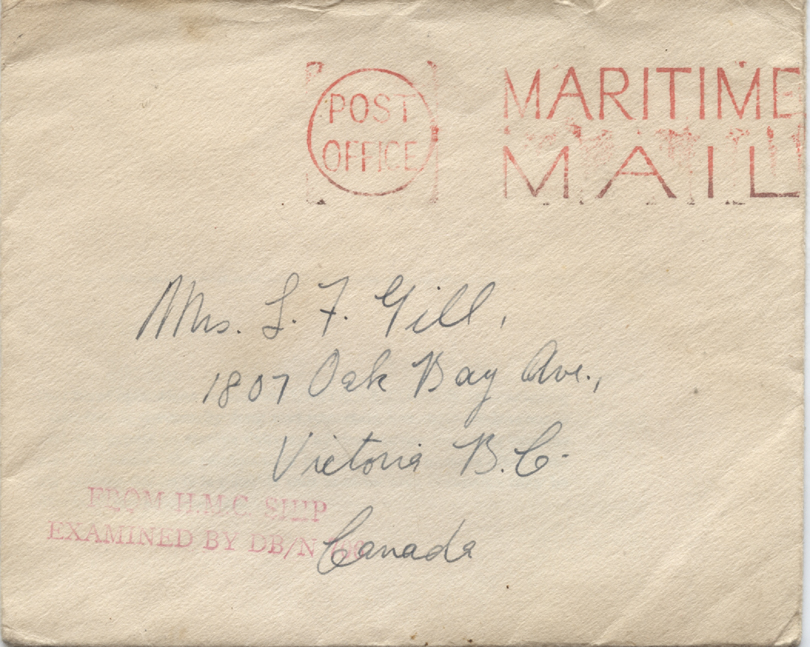 POST
OFFICE
MARITIME
MAIL
Mrs. L. F. Gill,
1807 Oak Bay Ave.,
Victoria B.C.
Canada
FROM H.M.C. SHIP
EXAMINED BY DB/N